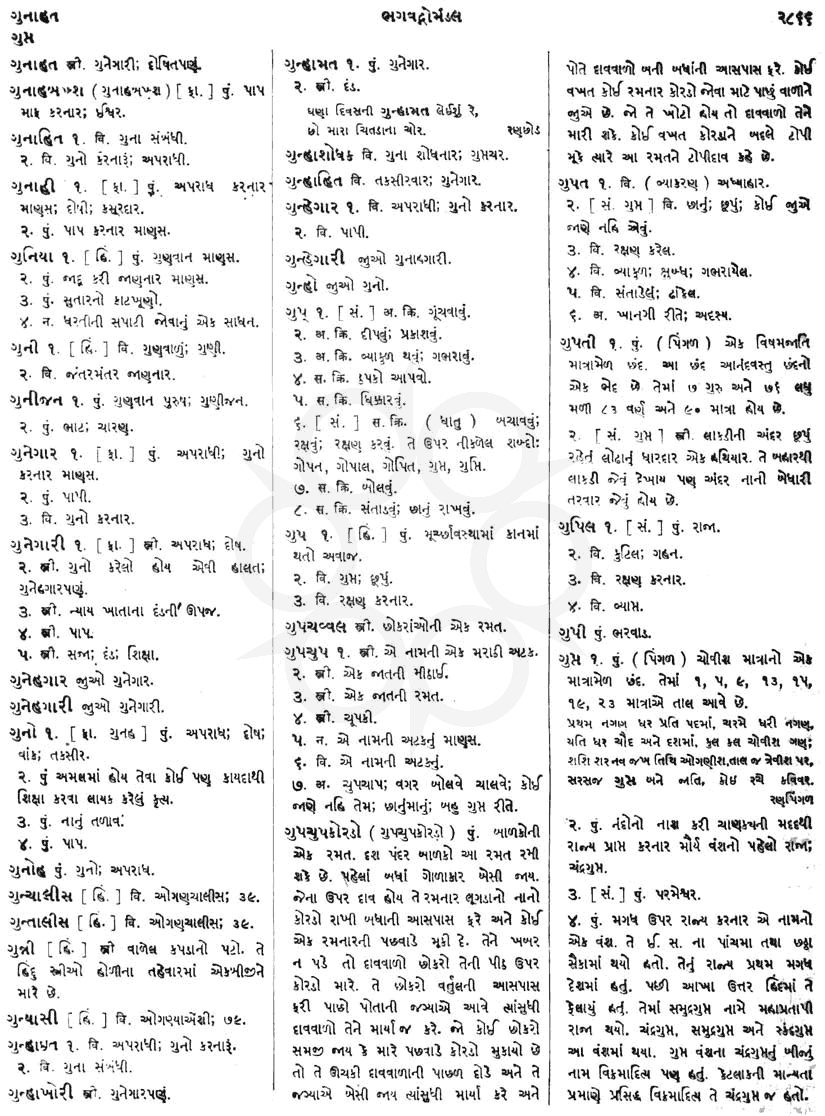 ગુનાહત
ગુપ્ત
ભગવદ્ગોમંડલ
૨૮૬૬
ગુનાહત સ્ત્રી. ગુનેગારી; દોષિતપણું.
ગુનાહબખ્શ ( ગુનાહબખ્શ ) [ ફા. ] પું. પાપ
માફ કરનાર; ઈશ્વર.
ગુનાહિત ૧. વિ. ગુના સંબંધી.
૨. વિ. ગુનો કરનારું; અપરાધી.
ગુનાહી ૧. [ ફા. ] પું. અપરાધ કરનાર
માણસ; દોષી; કસૂરદાર.
૨. પું. પાપ કરનાર માણસ.
ગુનિયા ૧. [ હિં. ] પું. ગુણવાન માણસ.
૨. પું. જાદૂ કરી જાણનાર માણસ.
૩. પું. સુતારનો કાટખૂણો.
૪. ન. ધરતીની સપાટી જોવાનું એક સાધન.
ગુની ૧. [ હિં. ] વિ. ગુણવાળું; ગુણી.
૨. વિ. જંતરમંતર જાણનાર.
ગુનીજન ૧. પું. ગુણવાન પુરુષ; ગુણીજન.
૨. પું. ભાટ; ચારણ.
ગુનેગાર ૧. [ ફા. ] પું. અપરાધી; ગુનો
કરનાર માણસ.
૨. પું. પાપી.
૩. વિ. ગુનો કરનાર.
ગુનેગારી ૧. [ ફા. ] સ્ત્રી. અપરાધ; દોષ.
૨. સ્ત્રી. ગુનો કરેલો હોય એવી હાલત;
ગુનેહગારપણું.
૩. સ્ત્રી. ન્યાય ખાતાના દંડની ઊપજ.
૪. સ્ત્રી. પાપ.
૫. સ્ત્રી. સજા; દંડ; શિક્ષા.
ગુનેહગાર જુઓ ગુનેગાર.
ગુનેહગારી જુઓ ગુનેગારી.
ગુનો ૧. [ ફા. ગુનહ ] પું. અપરાધ; દોષ;
વાંક; તકસીર.
૨. પું અમલમાં હોય તેવા કોઈ પણ કાયદાથી
શિક્ષા કરવા લાયક કરેલું કૃત્ય.
૩. પું. નાનું તળાવ.
૪. પું. પાપ.
ગુનોહ પું. ગુનો; અપરાધ.
ગુન્ચાલીસ [ હિં. ] વિ. ઓગણચાલીસ; ૩૯.
ગુન્તાલીસ [ હિં. ] વિ. ઓગણચાલીસ; ૩૯.
ગુન્ની [ હિં. ] સ્ત્રી વાળેલ કપડાનો પટો. તે
હિંદુ સ્ત્રીઓ હોળીના તહેવારમાં એકબીજીને
મારે છે.
ગુન્યાસી [ હિં. ] વિ. ઓગણ્યાએંશી; ૭૯.
ગુન્હાકૃત ૧. વિ. અપરાધી; ગુનો કરનારું.
૨. વિ. ગુના સંબંધી.
ગુન્હાખોરી સ્ત્રી. ગુનેગારપણું.
ગુન્હામત ૧. પું. ગુનેગાર.
૨. સ્ત્રી. દંડ.
ઘણા દિવસની ગુન્હામત લેઈશું રે,
છો મારા ચિતડાના ચોર. રણછોડ
ગુન્હાશોધક વિ. ગુના શોધનાર; ગુપ્તચર.
ગુન્હાહિત વિ. તકસીરવાર; ગુનેગાર.
ગુન્હેગાર ૧. વિ. અપરાધી; ગુનો કરનાર.
૨. વિ. પાપી.
ગુન્હેગારી જુઓ ગુનાહગારી.
ગુન્હો જુઓ ગુનો.
ગુપ્ ૧. [ સં. ] અ. ક્રિ. ગૂંચવાવું.
૨. અ. ક્રિ. દીપવું; પ્રકાશવું.
૩. અ. ક્રિ. વ્યાકુળ થવું; ગભરાવું.
૪. સ. ક્રિ. ઠપકો આપવો.
૫. સ. ક્રિ. ધિક્કારવું.
૬. [ સં. ] સ. ક્રિ. ( ધાતુ ) બચાવવું;
રક્ષવું; રક્ષણ કરવું. તે ઉપર નીકળેલ શબ્દો:
ગોપન, ગોપાલ, ગોપિત, ગુપ્ત, ગુપ્તિ.
૭. સ. ક્રિ. બોલવું.
૮. સ. ક્રિ. સંતાડવું; છાનું રાખવું.
ગુપ ૧. [ હિં. ] પું. મૂર્ચ્છાવસ્થામાં કાનમાં
થતો અવાજ.
૨. વિ. ગુપ્ત; છૂપું.
૩. વિ. રક્ષણ કરનાર.
ગુપચવ્વલ સ્ત્રી. છોકરાંઓની એક રમત.
ગુપચુપ ૧. સ્ત્રી. એ નામની એક મરાઠી અટક.
૨. સ્ત્રી. એક જાતની મીઠાઈ.
૩. સ્ત્રી. એક જાતની રમત.
૪. સ્ત્રી. ચૂપકી.
૫. ન. એ નામની અટકનું માણસ.
૬. વિ. એ નામની અટકનું.
૭. અ. ચુપચાપ; વગર બોલ્યે ચાલ્યે; કોઈ
જાણે નહિ તેમ; છાનુંમાનું; બહુ ગુપ્ત રીતે.
ગુપચુપકોરડો ( ગુપચુપકોરડો ) પું. બાળકોની
એક રમત. દશ પંદર બાળકો આ રમત રમી
શકે છે. પહેલાં બધાં ગોળાકાર બેસી જાય.
જેના ઉપર દાવ હોય તે રમનાર લૂગડાનો નાનો
કોરડો રાખી બધાની આસપાસ ફરે અને કોઈ
એક રમનારની પછવાડે મૂકી દે. તેને ખબર
ન પડે તો દાવવાળો છોકરો તેની પીઠ ઉપર
કોરડો મારે. તે છોકરો વર્તુલની આસપાસ
ફરી પાછો પોતાની જગ્યાએ આવે ત્યાંસુધી
દાવવાળો તેને માર્યા જ કરે. જો કોઈ છોકરો
સમજી જાય કે મારે પછવાડે કોરડો મુકાયો છે
તો તે ઊચકી દાવવાળાની પાછળ દોડે અને તે
જગ્યાએ બેસી જાય ત્યાંસુધી માર્યા કરે અને
પોતે દાવવાળો બની બધાંની આસપાસ ફરે. કોઈ
વખત કોઈ રમનાર કોરડો જોવા માટે પાછું વાળીને
જુએ છે. જો તે ખોટો હોય તો દાવવાળો તેને
મારી શકે. કોઈ વખત કોરડાને બદલે ટોપી
મૂકે ત્યારે આ રમતને ટોપીદાવ કહે છે.
ગુપત ૧. વિ. ( વ્યાકરણ ) અધ્યાહાર.
૨. [ સં. ગુપ્ત ] વિ. છાનું; છૂપું; કોઈ જુએ
જાણે નહિ એવું.
૩. વિ. રક્ષણ કરેલ.
૪. વિ. વ્યાકુળ; ક્ષુબ્ધ; ગભરાયેલ.
૫. વિ. સંતાડેલું; ઢાંકેલ.
૬. અ. ખાનગી રીતે; અદૃશ્ય.
ગુપતી ૧. પું. ( પિંગળ ) એક વિષમજાતિ
માત્રામેળ છંદ. આ છંદ આનંદવસ્તુ છંદનો
એક ભેદ છે તેમાં ૭ ગુરુ અને ૭૬ લઘુ
મળી ૮૩ વર્ણ અને ૯૦ માત્રા હોય છે.
૨. [ સં. ગુપ્ત ] સ્ત્રી. લાકડીની અંદર છૂપું
રહેતું લોઢાનું ધારદાર એક હથિયાર. તે બહારથી
લાકડી જેવું દેખાય પણ અંદર નાની બેધારી
તરવાર જેવું હોય છે.
ગુપિલ ૧. [ સં. ] પું. રાજા.
૨. વિ. કુટિલ; ગહન.
૩. વિ. રક્ષણ કરનાર.
૪. વિ. વ્યાપ્ત.
ગુપી પું. ભરવાડ.
ગુપ્ત ૧. પું. ( પિંગળ ) ચોવીશ માત્રાનો એક
માત્રામેળ છંદ. તેમાં ૧, ૫, ૯, ૧૩, ૧૫,
૧૯, ૨૩ માત્રાએ તાલ આવે છે.
પ્રથમ નગણ ધર પ્રતિ પદમાં, ચરમે ધરી નગણ,
યતિ ધર ચૌદ અને દશમાં, કુલ કલ ચોવીશ ગણ;
શશિ શર નવ જખ તિથિ ઓગણીશ, તાલ જ ત્રેવીશ પર,
સરસજ ગુપ્ત બને જાતિ, કોઇ રચે કવિવર.
રણપિંગળ
૨. પું. નંદોનો નાશ કરી ચાણક્યની મદદથી
રાજ્ય પ્રાપ્ત કરનાર મૌર્ય વંશનો પહેલો રાજા;
ચંદ્રગુપ્ત.
૩. [ સં. ] પું. પરમેશ્વર.
૪. પું. મગધ ઉપર રાજ્ય કરનાર એ નામનો
એક વંશ. તે ઈ. સ. ના પાંચમા તથા છઠ્ઠા
સૈકામાં થયો હતો. તેનું રાજ્ય પ્રથમ મગધ
દેશમાં હતું. પછી આખા ઉત્તર હિંદમાં તે
ફેલાયું હતું. તેમાં સમુદ્રગુપ્ત નામે મહાપ્રતાપી
રાજા થયો. ચંદ્રગુપ્ત, સમુદ્રગુપ્ત અને સ્કંદગુપ્ત
આ વંશમાં થયા. ગુપ્ત વંશના ચંદ્રગુપ્તનું બીજું
નામ વિક્રમાદિત્ય પણ હતું. કેટલાકની માન્યતા
પ્રમાણે પ્રસિદ્ધ વિક્રમાદિત્ય તે ચંદ્રગુપ્ત જ હતો.